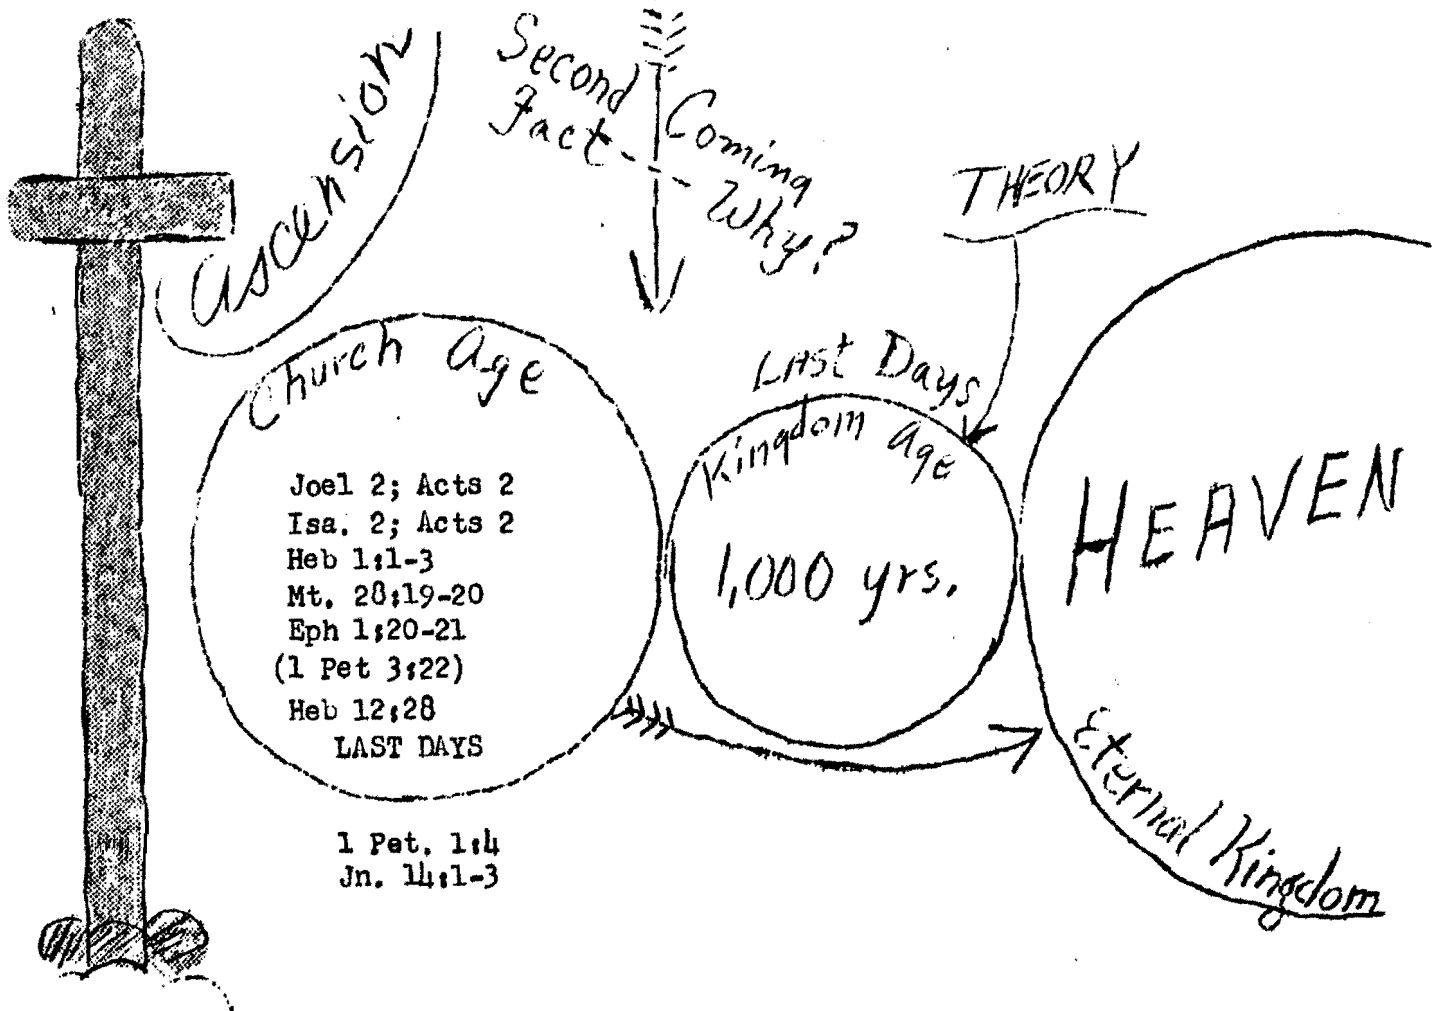 Ascension
Second Coming
Fact -- Why?
THEORY
Church Age
Joel 2; Acts 2
Isa. 2; Acts 2
Heb 1:1-3
Mt. 28:19-20
Eph 1:20-21
(1 Pet 3:22)
Heb 12:28
LAST DAYS
1 Pet. 1:4
Jn. 14:1-3
Last Days
Kingdom Age
1,000 yrs.
HEAVEN
Eternal Kingdom